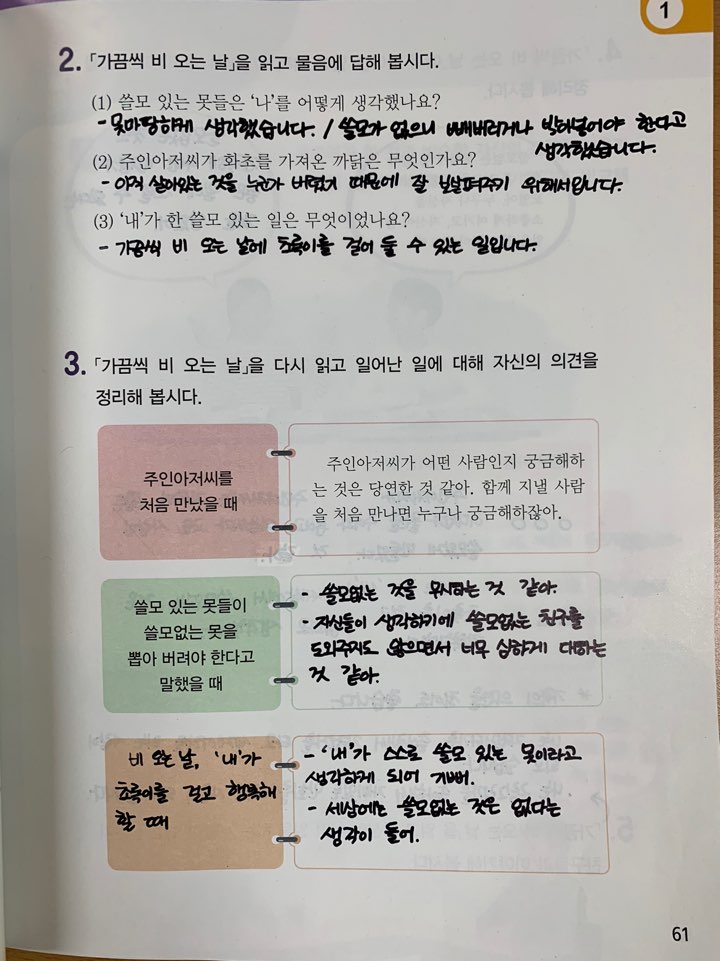 1
2. 「가끔씩 비 오는 날」을 읽고 물음에 답해 봅시다.
(1) 쓸모 있는 못들은 '나'를 어떻게 생각했나요?
- 못마땅하게 생각했습니다. / 쓸모가 없으니 빼버리거나 박혀넣어야 한다고
생각했습니다.
(2) 주인아저씨가 화초를 가져온 까닭은 무엇인가요?
- 아직 살아있는 것을 누가 버렸기 때문에 잘 보살펴주기 위해서입니다.
(3) '내'가 한 쓸모 있는 일은 무엇이었나요?
- 가끔씩 비 오는 날에 초록이를 걸어 둘 수 있는 일입니다.
3. 「가끔씩 비 오는 날」을 다시 읽고 일어난 일에 대해 자신의 의견을
정리해 봅시다.
주인아저씨를
처음 만났을 때
주인아저씨가 어떤 사람인지 궁금해하
는 것은 당연한 것 같아. 함께 지낼 사람
을 처음 만나면 누구나 궁금해하잖아.
쓸모 있는 못들이
쓸모없는 못을
뽑아 버려야 한다고
말했을 때
- 쓸모없는 것을 무시하는 것 같아.
- 자신들이 생각하기에 쓸모없는 친구를
도와주지도 않으면서 너무 심하게 대하는
것 같아.
비 오는 날, '내'가
초록이를 걸고 행복해
할 때
- '내'가 스스로 쓸모 있는 못이라고
생각하게 되어 기뻐.
- 세상에는 쓸모없는 것은 없다는
생각이 들어.
61